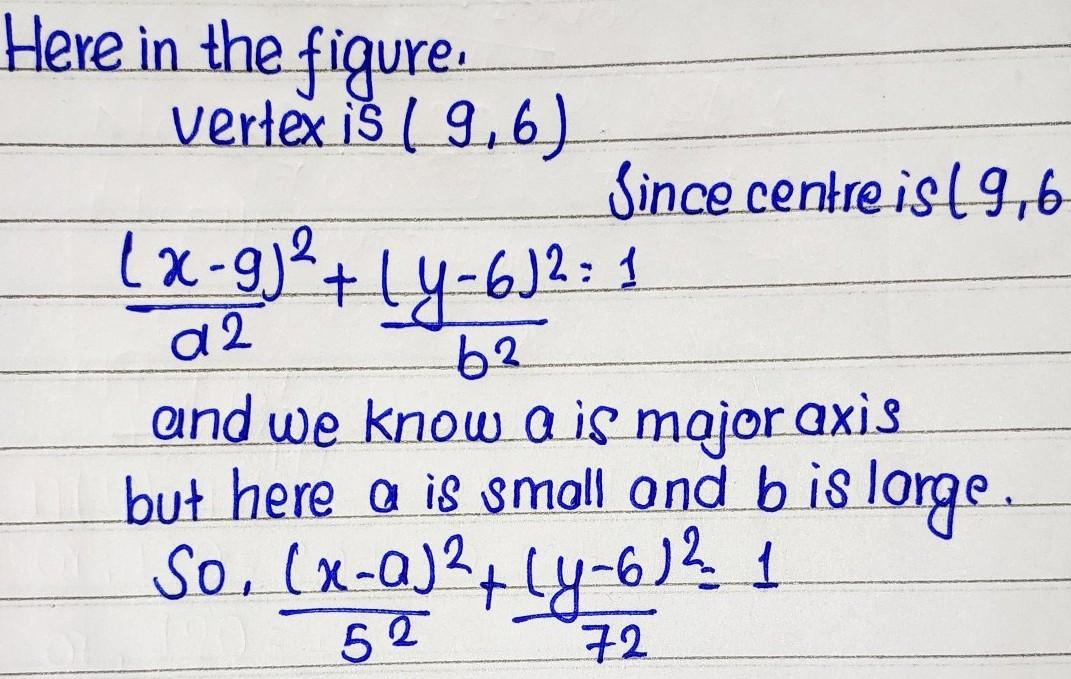 Here in the figure.
vertex is ( 9,6)
Since centre is ( 9,6
(x-9)² + (y-6)² = 1
a2 b2
and we know a is major axis
but here a is small and b is large.
So, (x-a)² + (y-6)² = 1
5² 72